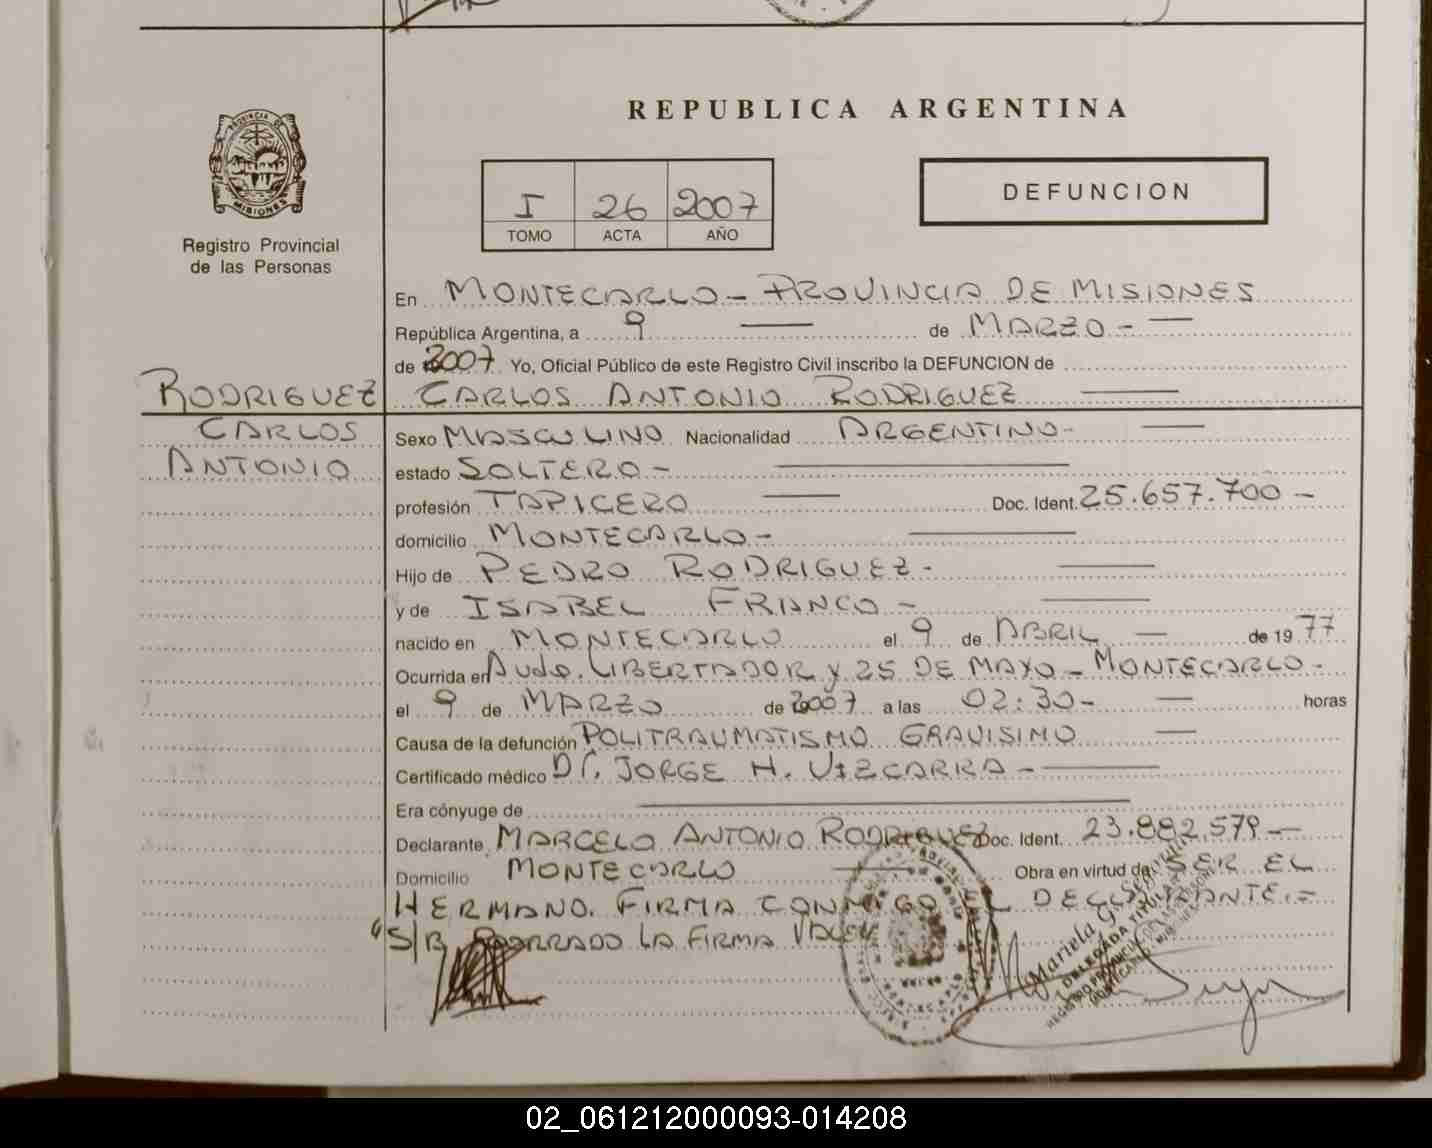 REPUBLICA ARGENTINA
PROVINCIA DE
MISIONES
Registro Provincial
de las Personas
I 26 2007
TOMO ACTA AÑO
DEFUNCION
En MONTECARLO - PROVINCIA DE MISIONES
República Argentina, a 9 de MARZO -
de 2007 Yo, Oficial Público de este Registro Civil inscribo la DEFUNCION de
RODRIGUEZ
CARLOS
ANTONIO
CARLOS ANTONIO RODRIGUEZ
Sexo MASCULINO Nacionalidad ARGENTINO-
estado SOLTERO -
profesión TAPICERO Doc. Ident. 25.657.700 -
domicilio MONTECARLO -
Hijo de PEDRO RODRIGUEZ -
y de ISABEL FRANCO -
nacido en MONTECARLO el 9 de ABRIL de 1977
Ocurrida en Avda. LIBERTADOR y 25 DE MAYO - MONTECARLO -
el 9 de MARZO de 2007 a las 02:30- horas
Causa de la defunción POLITRAUMATISMO GRAVISIMO
Certificado médico Dr. JORGE H. VIZCARRA -
Era cónyuge de
Declarante MARCELO ANTONIO RODRIGUEZ Doc. Ident. 23.882.579 -
Domicilio MONTECARLO Obra en virtud de SER EL
HERMANO. FIRMA CONMIGO EL DECLARANTE.=
"S/B BORRADO LA FIRMA VALE"
Mariela G.
DELEGADA TITULAR
02_061212000093-014208